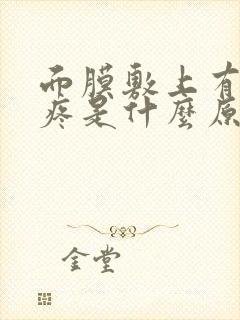 而膜敷上有
疼是什麼原
金堂